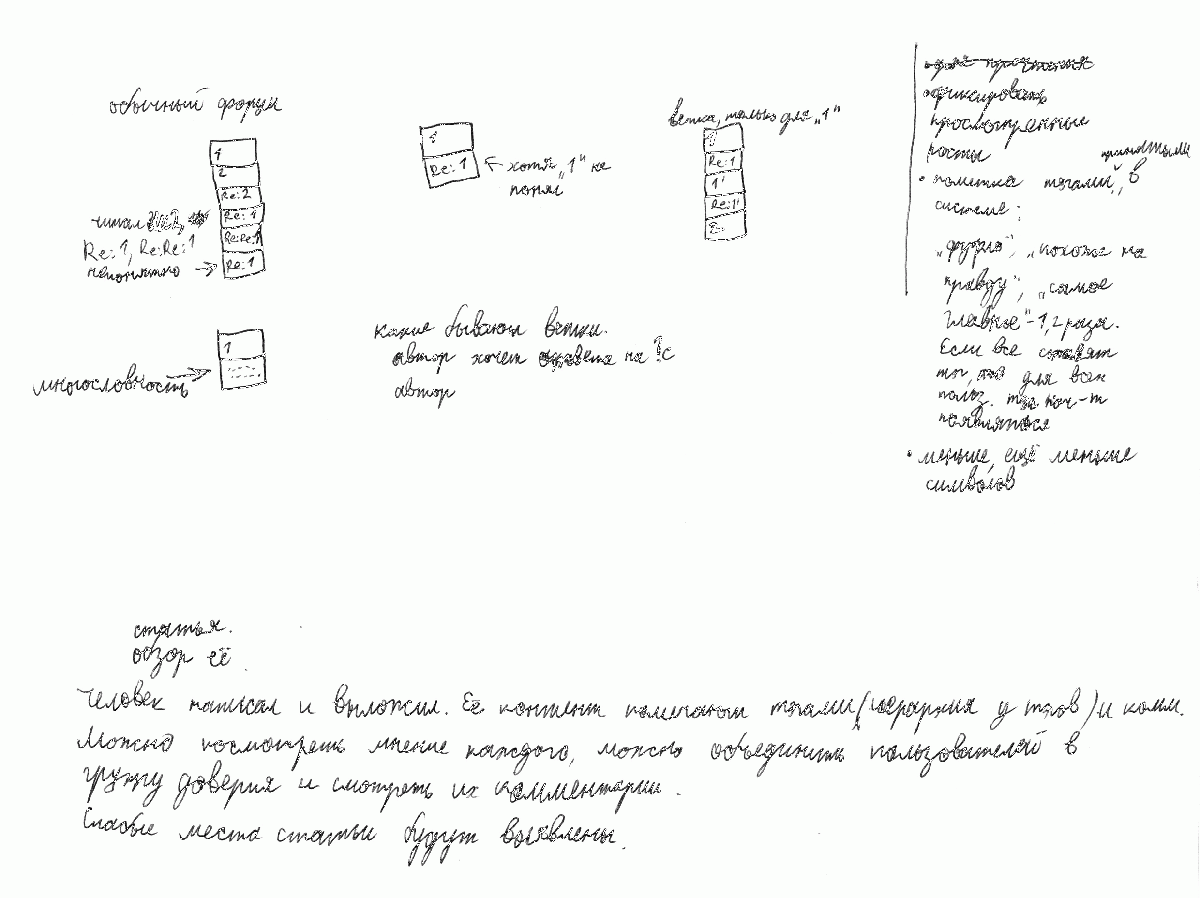 обычный форум
1
2
Re: 2
Re: 1
Re:Re:1
Re: 1
читал
Re: 1, Re:Re: 1
непонятно →
1
Re: 1
← хотя „1" не
понял
ветка, только для „1"
1
Re: 1
1'
Re: 1'
2
многословность
1
какие бывают ветки.
автор хочет ответа на
автор
• фиксировать
просмотренные
посты
• пометка тэгами, принятыми в
системе:
„фуфло", „похоже на
правду", „самое
главное" - 1, 2 раза.
Если все ставят
тэг, для всех
польз.
появляться
• меньше, ещё меньше
символов
статья.
обзор её.
Человек написал и выложил. Её контент помечают тэгами (иерархия у тэгов) и комм.
Можно посмотреть мнение каждого, можно объединить пользователей в
группу доверия и смотреть их комментарии.
Слабые места статьи будут выявлены.